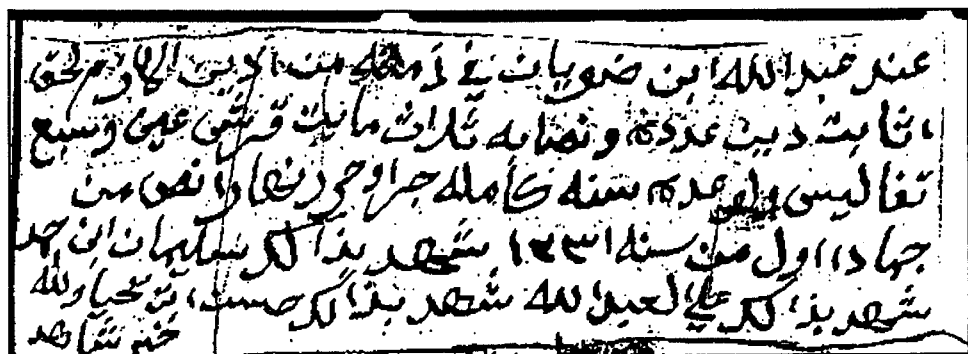 عند عبدالله ابن ضويان في ذمته من الدين اللازم لحق
اثابت دين عدده ونصابه ثلاث مايت قرش عين وسبع
تفاليس وله عدة سنه كامله جرا وحرر نهار انصف من
جماد ااول من سنه ١٣٣١ شهد بذالك سليمان ابن حمد
شهد بذالك علي العبدالله شهد بذالك حسن ابن يحيا والله
خير شاهد